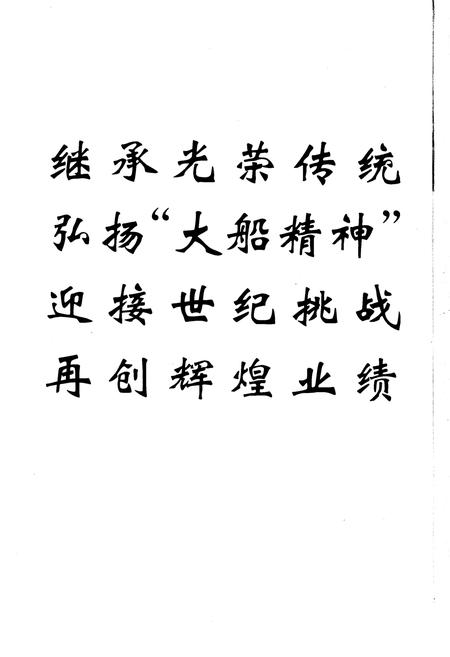 继承光荣传统
弘扬“大船精神”
迎接世纪挑战
再创辉煌业绩